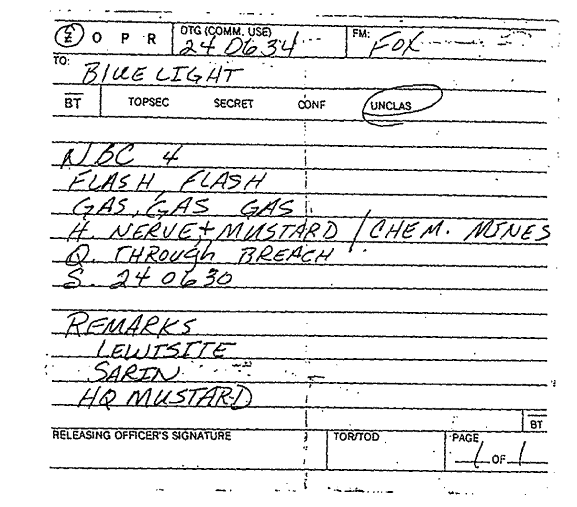 Z O P R DTG (COMM. USE) 24 0634 FM: FOX
TO: BLUE LIGHT
BT TOPSEC SECRET CONF UNCLAS
NBC 4
FLASH, FLASH
GAS, GAS GAS
H. NERVE + MUSTARD / CHEM. MINES
Q. THROUGH BREACH
S. 24 0630
REMARKS
LEWISITE
SARIN
HQ MUSTARD
BT
RELEASING OFFICER'S SIGNATURE TOR/TOD PAGE
1 OF 1